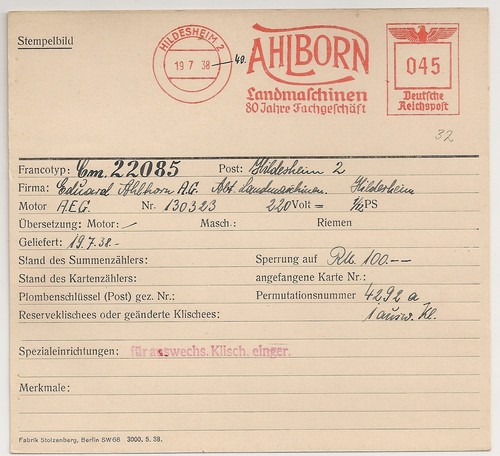 Stempelbild
HILDESHEIM 2
19 7 38 - 40.
AHLBORN
Landmaschinen
80 Jahre Fachgeschäft
045
Deutsche
Reichspost
32
Francotyp: Cm. 22085 Post: Hildesheim 2
Firma: Eduard Ahlborn A.G. Abt. Landmaschinen. Hildesheim
Motor A.E.G. Nr. 130323 220 Volt = 1/12 PS
Übersetzung: Motor: — Masch.: Riemen
Geliefert: 19.7.38.-
Stand des Summenzählers: Sperrung auf RM. 100.--
Stand des Kartenzählers: angefangene Karte Nr.:
Plombenschlüssel (Post) gez. Nr.: Permutationsnummer 4292 a
Reserveklischees oder geänderte Klischees: 1 ausw. Kl.
Spezialeinrichtungen: für auswechs. Klisch. einger.
Merkmale:
Fabrik Stolzenberg, Berlin SW 68 3000. 5. 38.